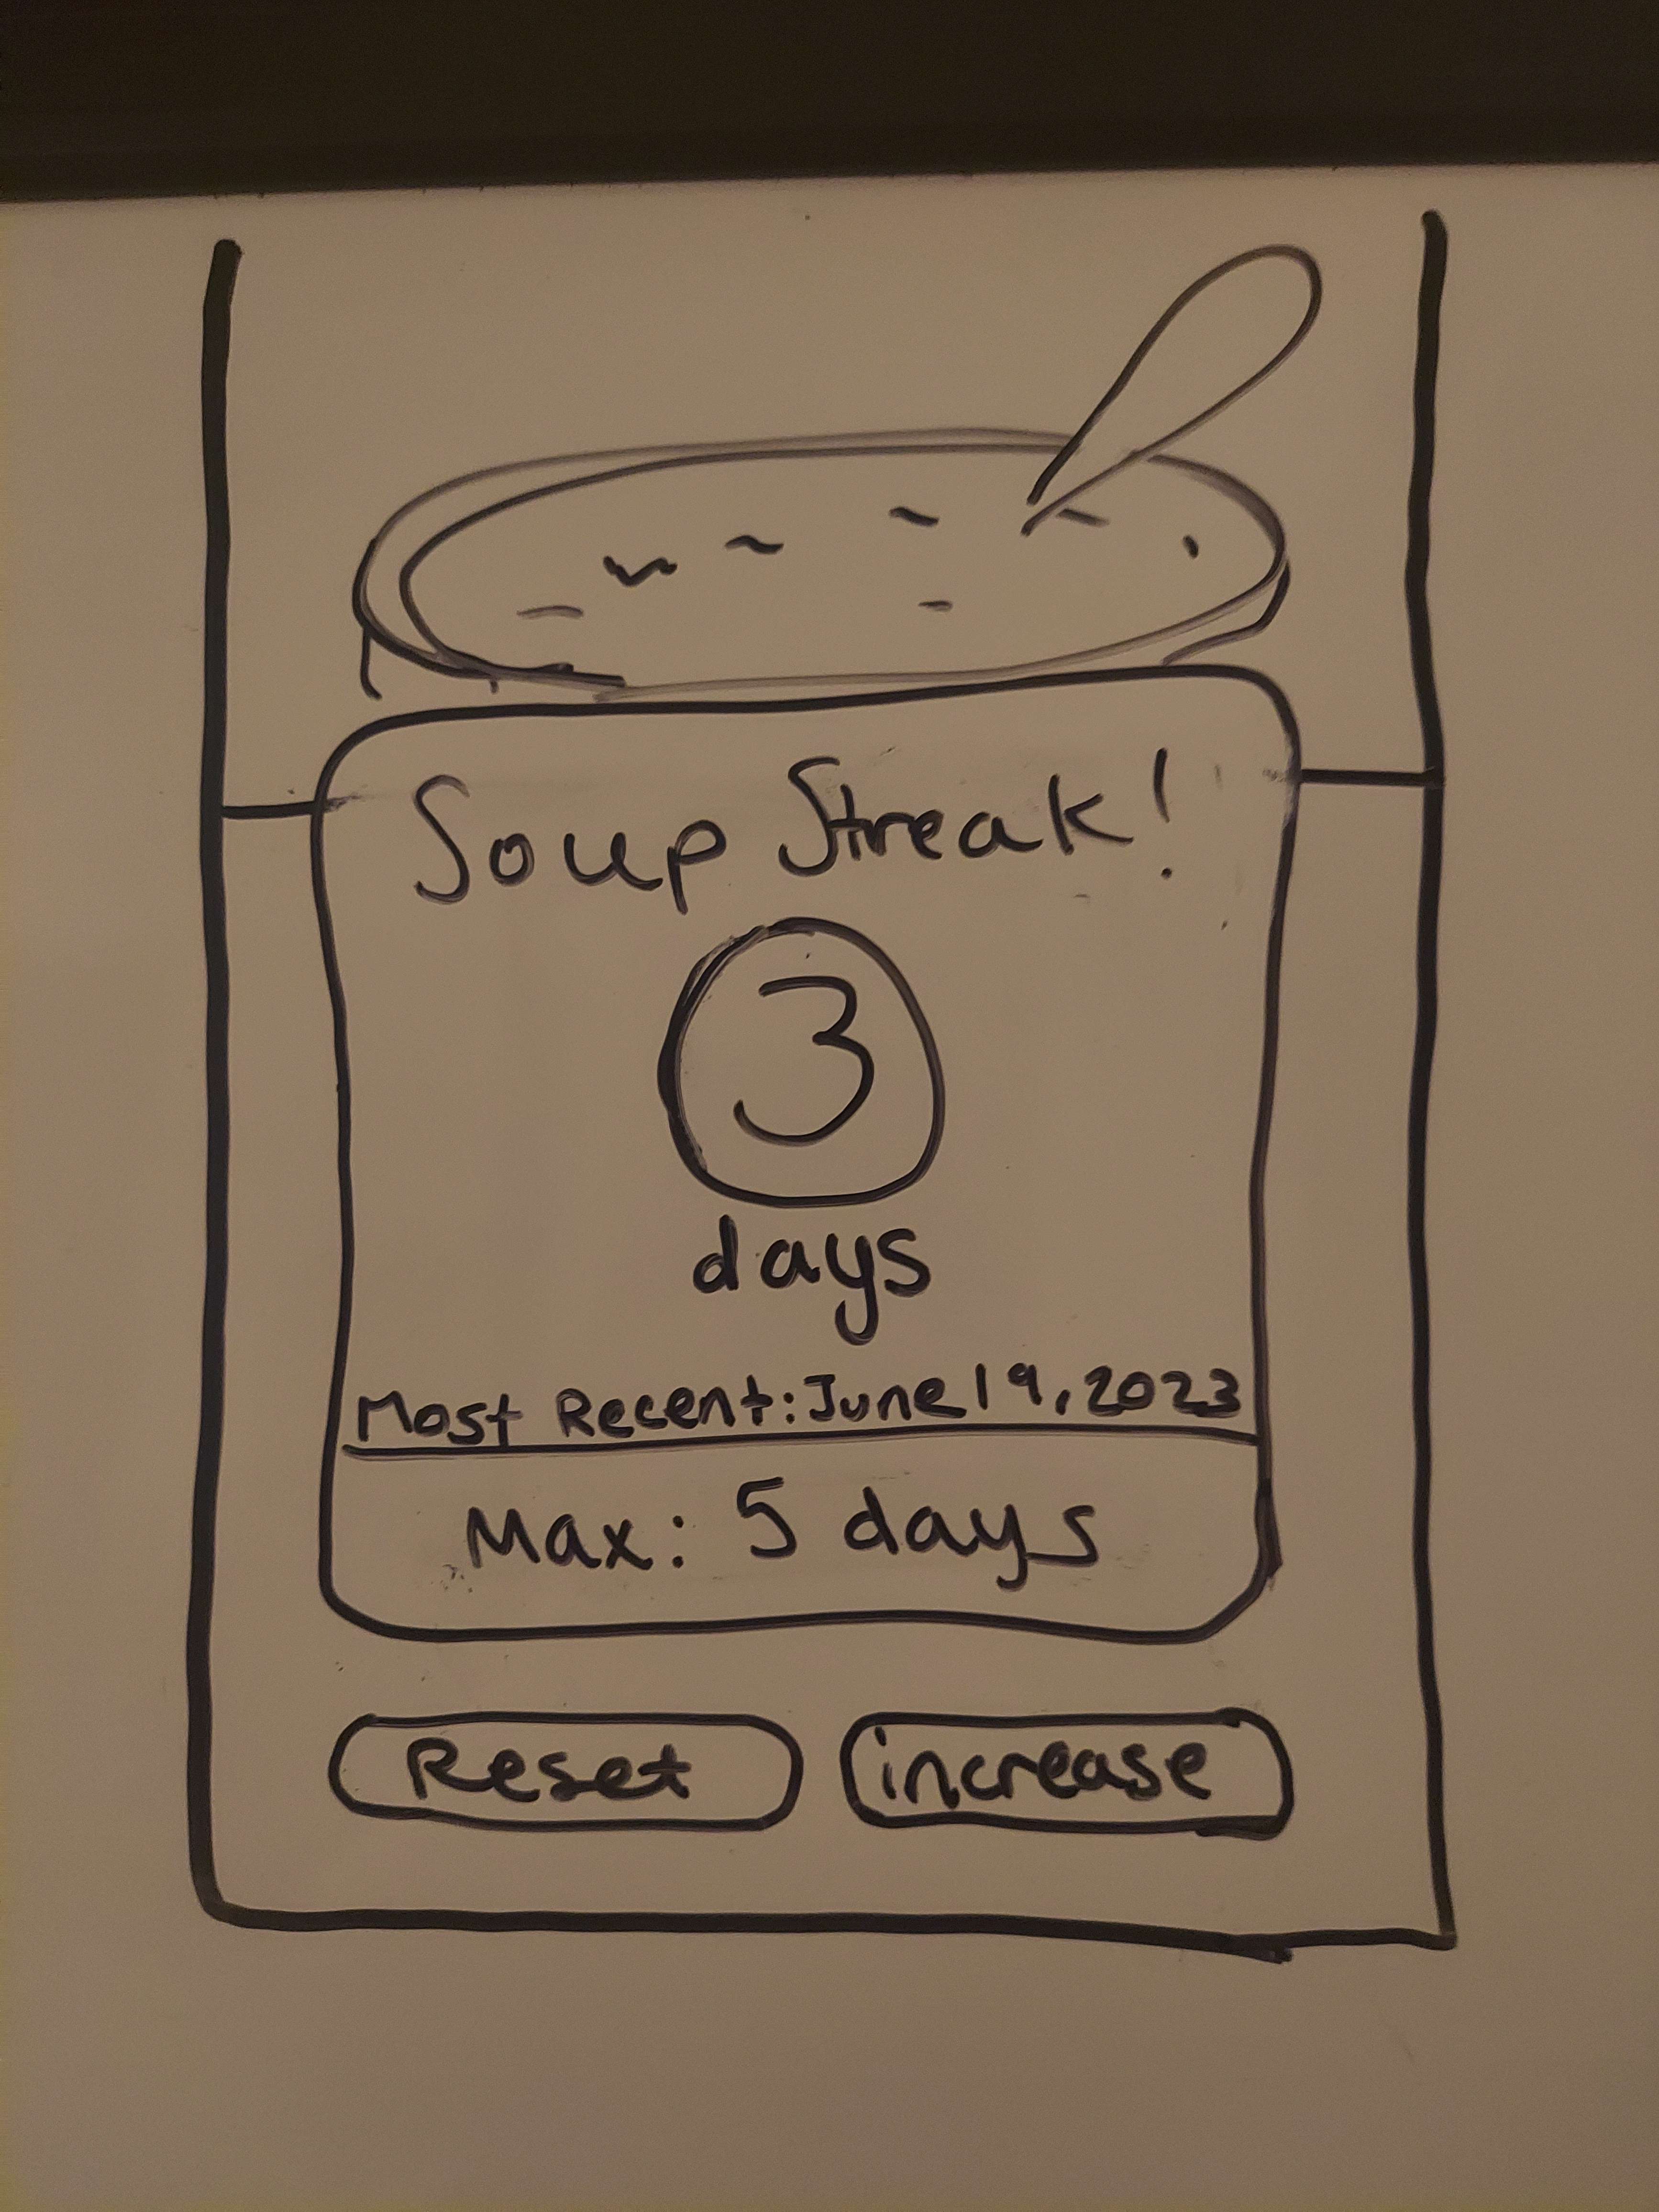 Soup Streak!
3
days
Most Recent: June 19, 2023
Max: 5 days
Reset
increase